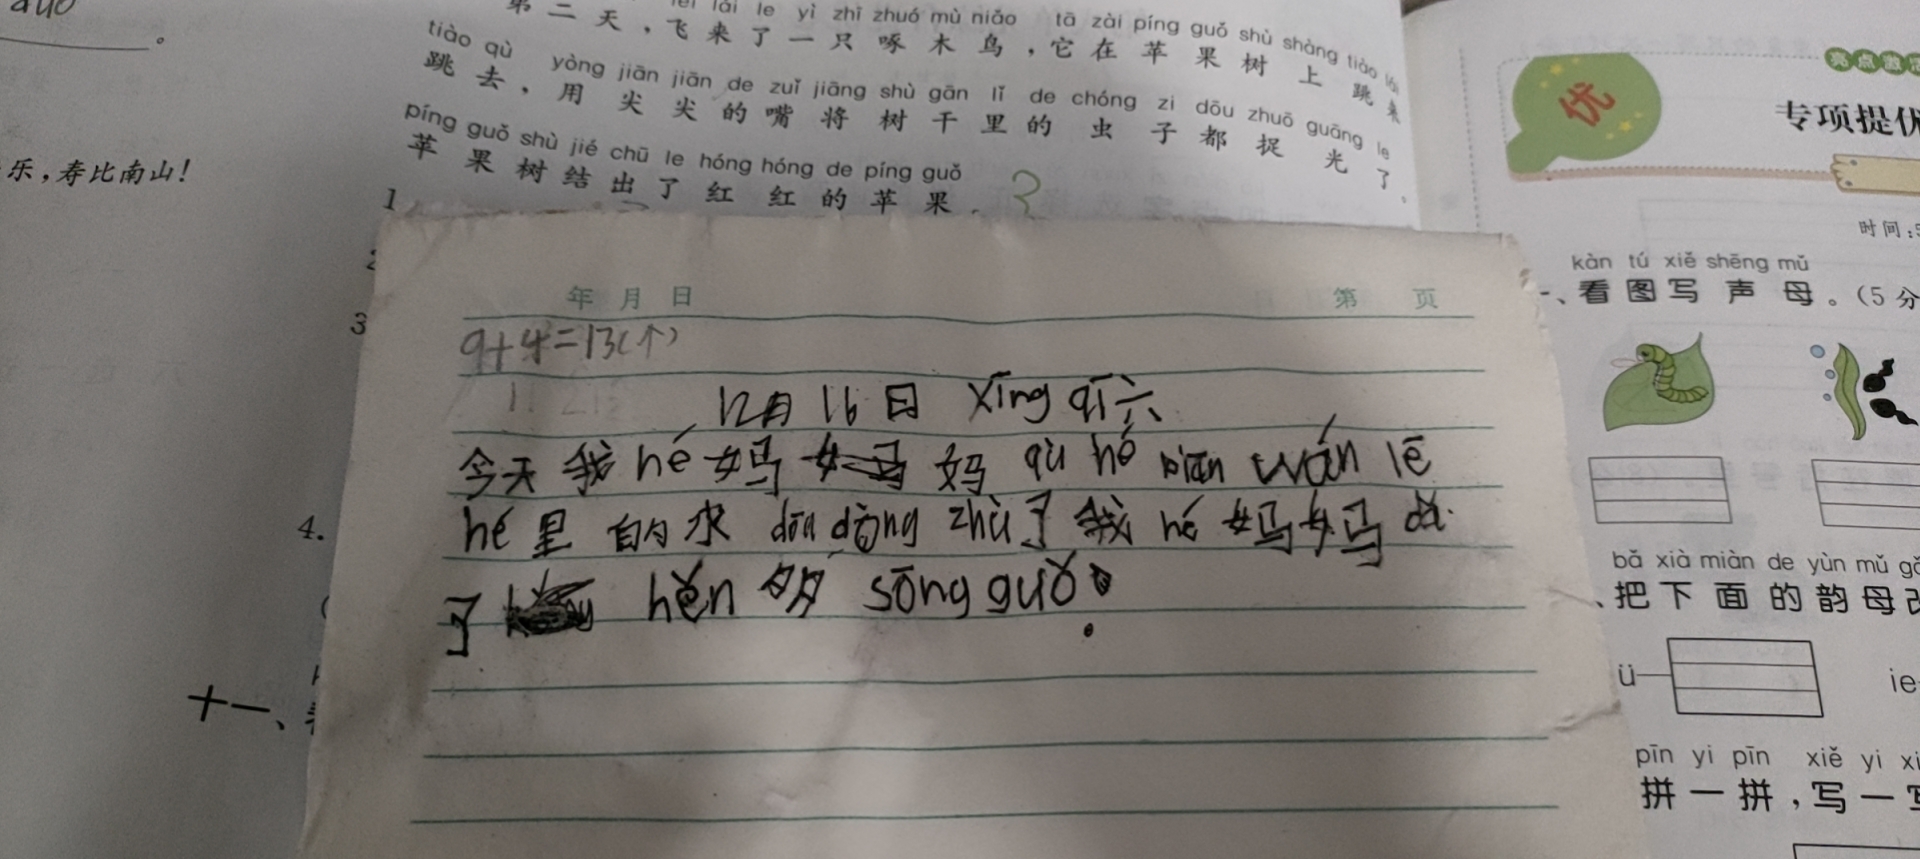 duo
第二天，飞来了一只啄木鸟，它在苹果树上跳来
lái le yì zhī zhuó mù niǎo tā zài píng guǒ shù shàng tiào lái
tiào qù yòng jiān jiān de zuǐ jiāng shù gān lǐ de chóng zi dōu zhuō guāng le
跳去，用尖尖的嘴将树干里的虫子都捉光了。
píng guǒ shù jié chū le hóng hóng de píng guǒ
苹果树结出了红红的苹果
乐，寿比南山！
1
3
4.
十一、
年 月 日 第 页
9+4=13(个)
12月16日 xīng qī六
今天我hé妈妈qù hé biān wán lē
hé里的水dōu dòng zhù了我hé妈妈
了 hěn多 sōng guǒ。
优
专项提优
时间：
kàn tú xiě shēng mǔ
一、看图写声母。（5分
bǎ xià miàn de yùn mǔ gǎ
、把下面的韵母
ü ie
pīn yi pīn xiě yi xi
拼一拼，写一写